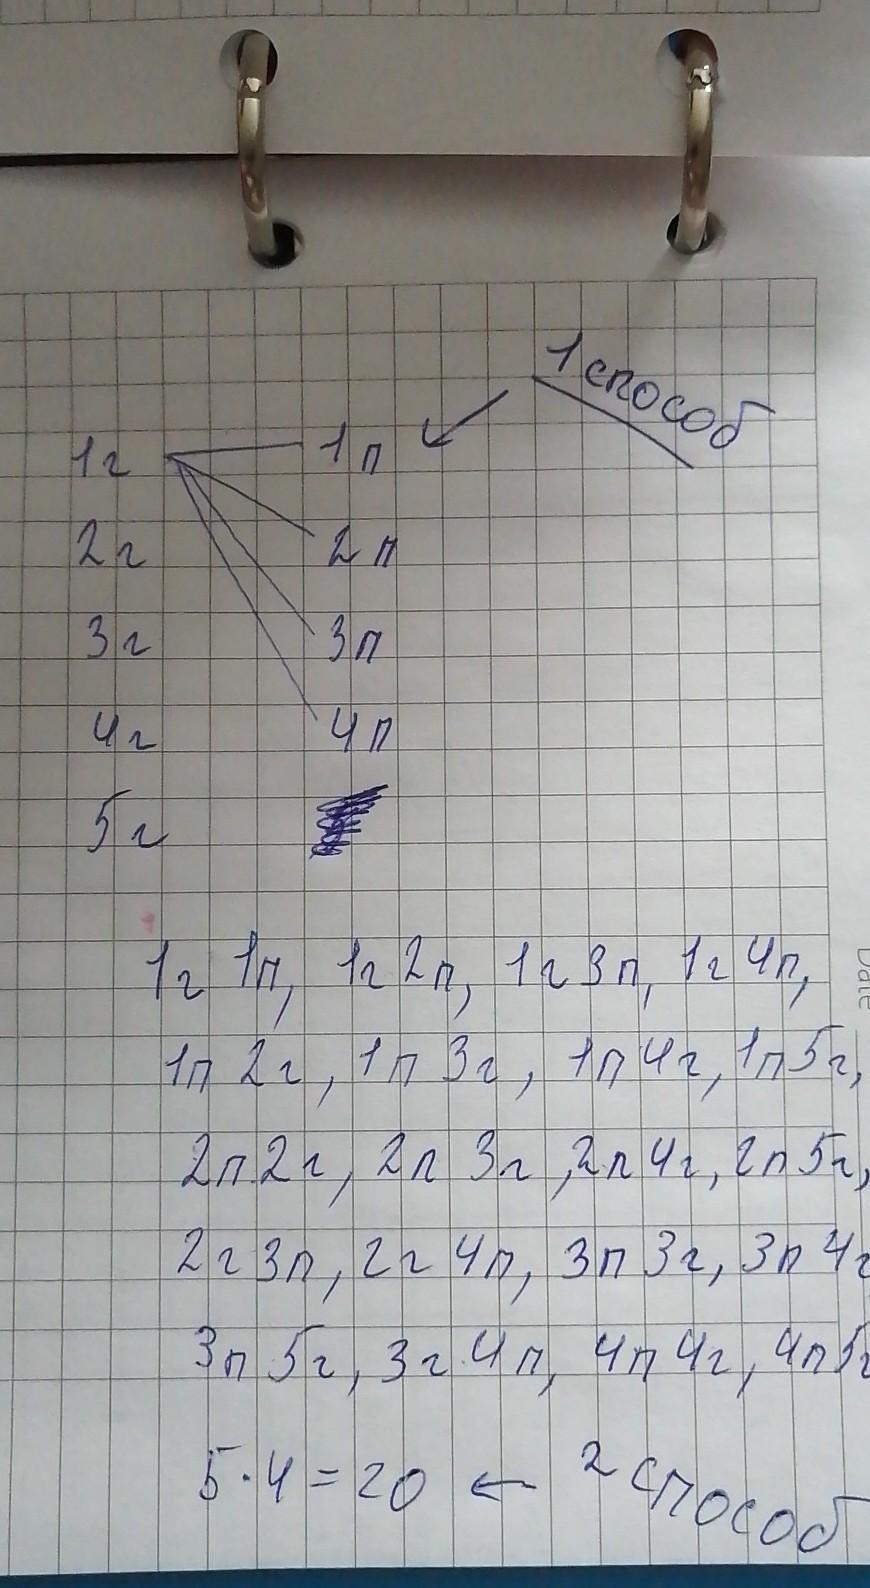 1 способ
1г 1п
2г 2п
3г 3п
4г 4п
5г
1г 1п, 1г 2п, 1г 3п, 1г 4п,
1п 2г, 1п 3г, 1п 4г, 1п 5г,
2п 2г, 2п 3г, 2п 4г, 2п 5г,
2г 3п, 2г 4п, 3п 3г, 3п 4г
3п 5г, 3г 4п, 4п 4г, 4п 5г
5·4=20 ← 2 способ
Date